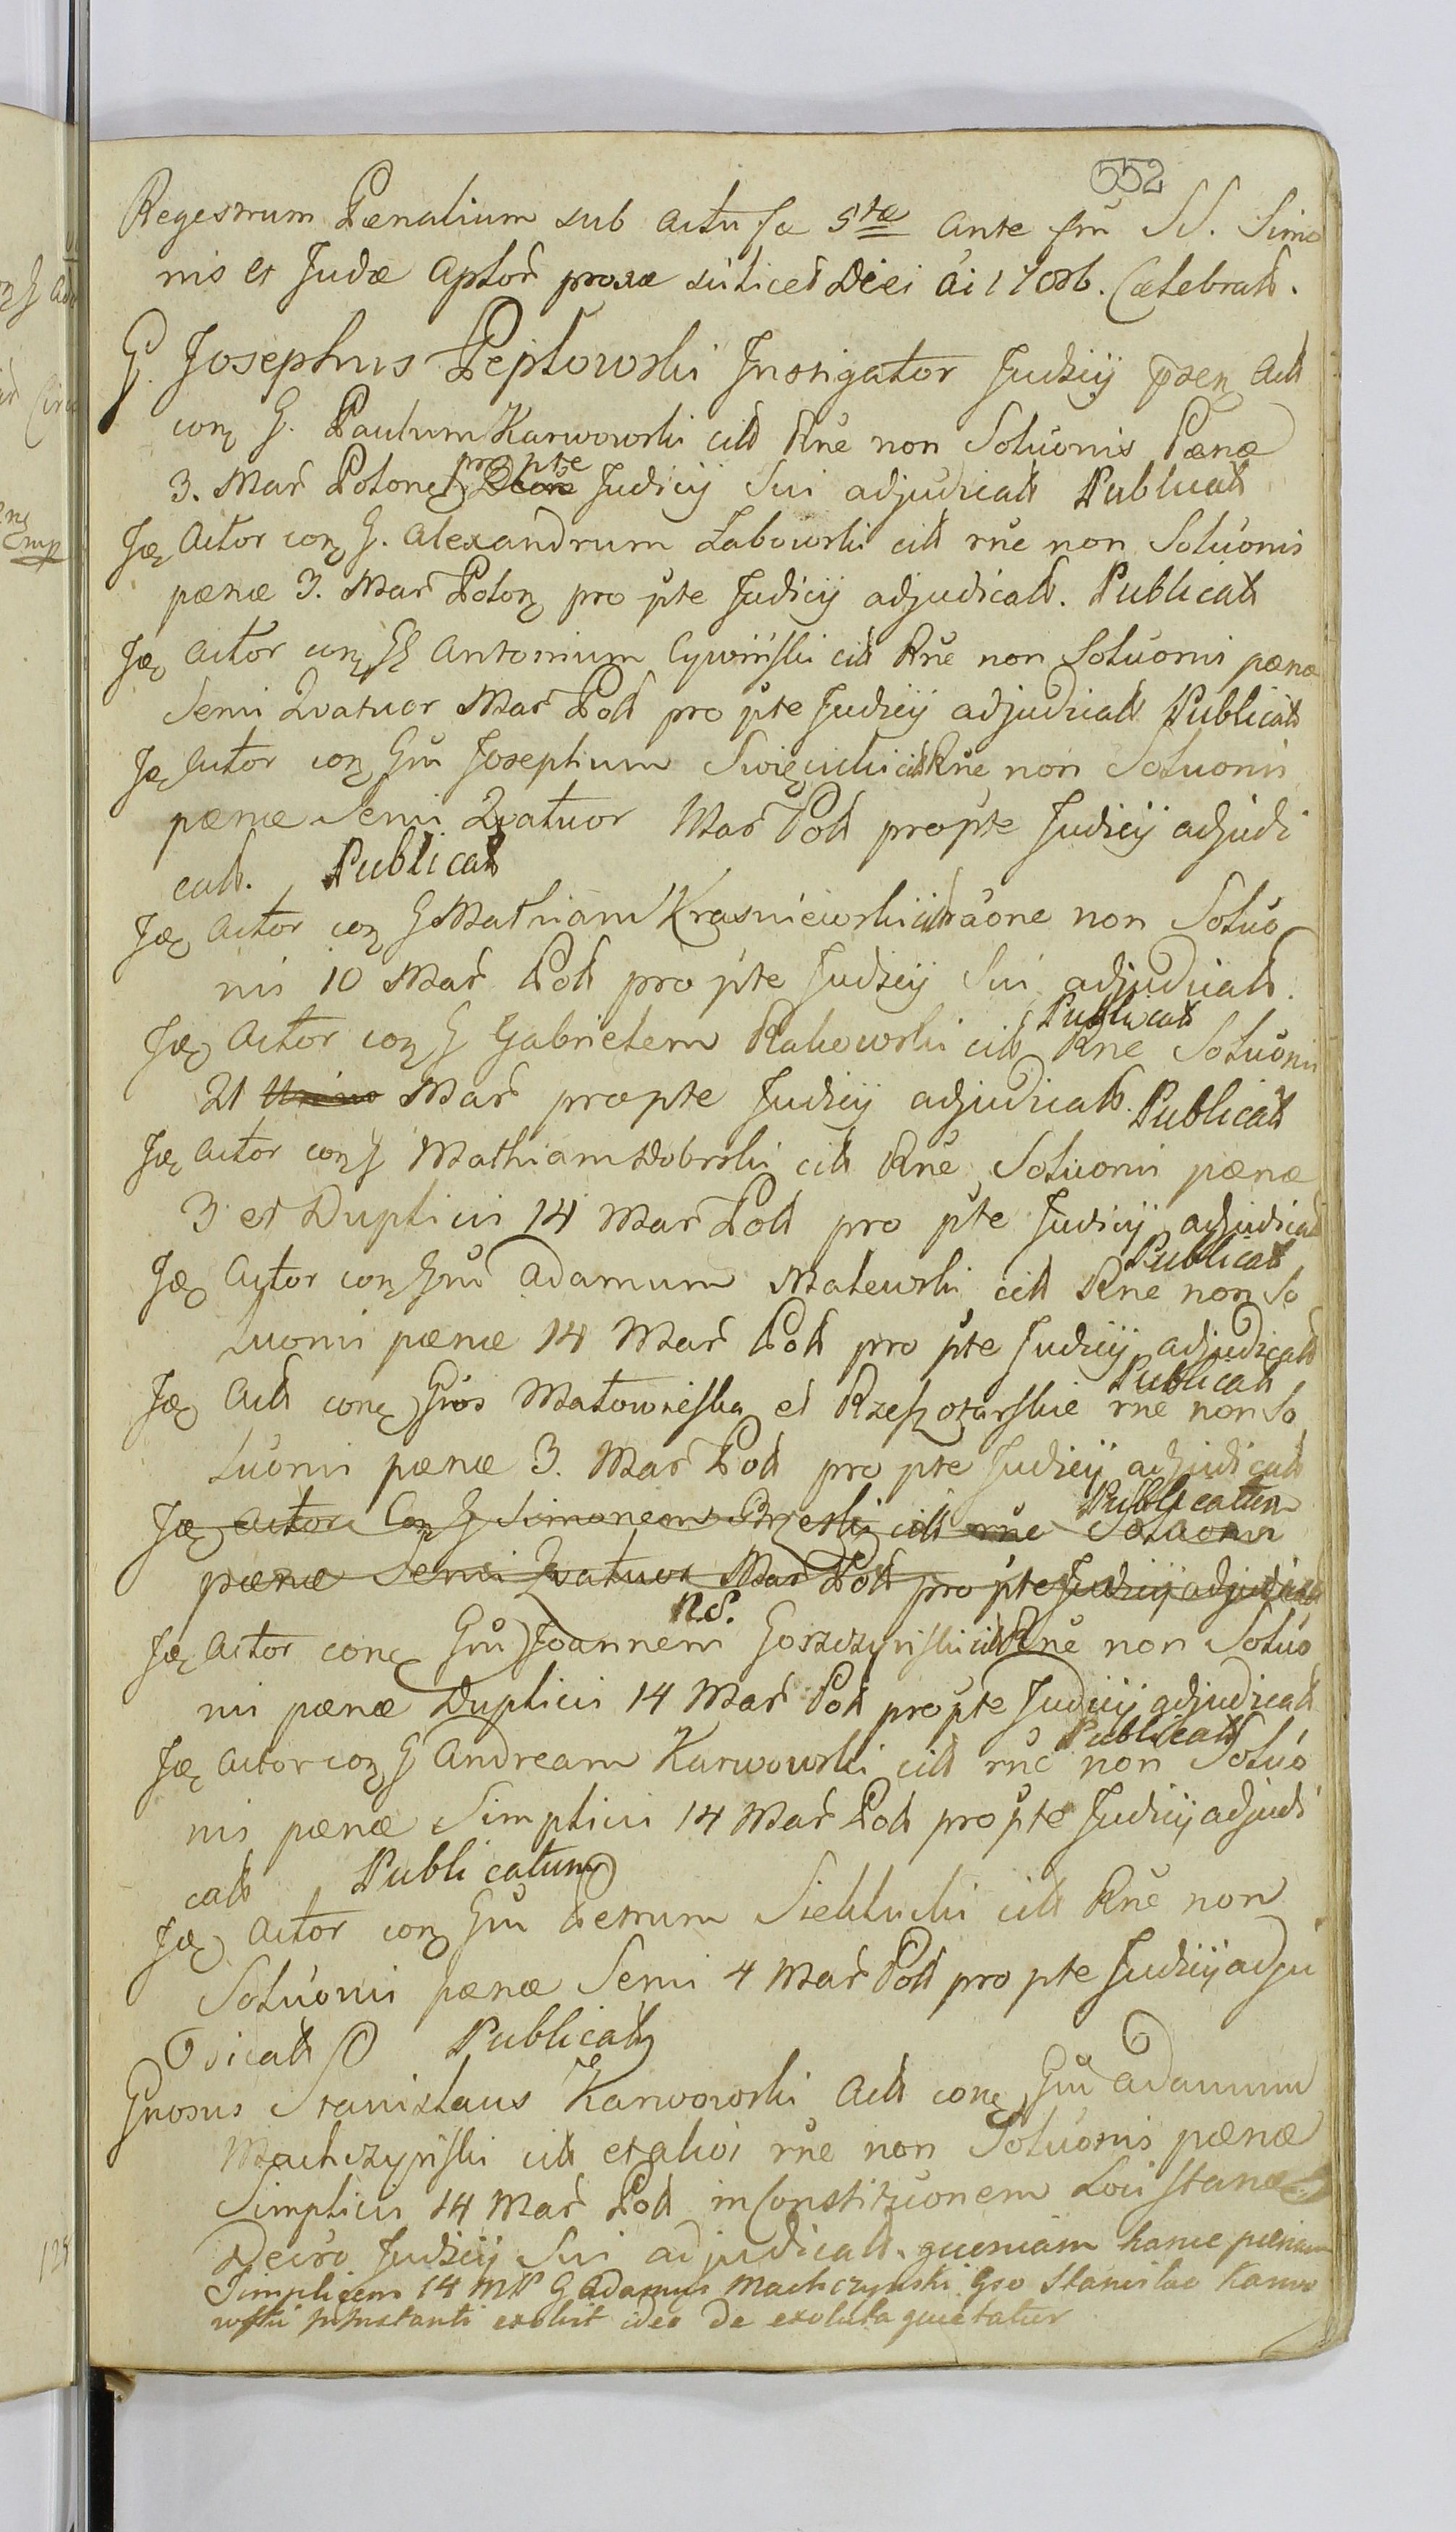 552
Regestrum Pænalium sub actu fa 5ta ante fm SS. Simo
nis et Judæ Aptor proxa Diei ai 17 Celebrat.
G. Josephus Peptowski Instigator Judicij Præn Act
con G. Paulum Karwowski citt Rne non Soluonis Pænæ
3. Mar Polon pro pte Judicij Sui adjudicatt Publicatt
Jd Actor con G. Alexandrum Zabowski citt rne non Soluonis
pænæ 3. Mar Polon pro pte Judicij adjudicatt. Publicatt
Jd Actor con G Antonium Cywiński citt Rne non Soluonis pænæ
Semi Qvatuor Mar Poll pro pte Judicij adjudicatt Publicatt
Jd Actor con Gm Josephum Święcicki citt Rne non Soluonis
pænæ Semi Qvatuor Mar Poll pro pte Judicij adjudi
catt. Publicatt
Jd Actor con G Mathiam Krasniewski citt raone non Soluo
nis 10 Mar Poll pro pte Judicij Sui adjudicatt.
Publicatt
Jd Actor con G Gabrielem Rakowski citt Rne Soluonis
21 Mar pro pte Judicij adjudicatt. Publicatt
Jd Actor con G Mathiam Dobrski citt Rne Soluonis pænæ
3 et Duplicis 14 Mar Poll pro pte Judicij adjudicatt
Publicatt
Jd Actor con Gm Adamum Malewski citt Rne non So
luonis pænæ 14 Mar Poll pro pte Judicij adjudicatt
Publicatt
Jd Act con Gnos Małowieska et Rzeszotarskie rne non So
luonis pænæ 3. Mar Poll pro pte Judicij adjudicatt
Publicatum
Jd Actor Con G Simonem Brzeski citt rne Soluonis
pænæ Semi Qvatuor Mar Poll pro pte Judicij adjudicatt
N.S.
Jd Actor con Gm Joannem Gorzczyński citt Rne non Soluo
nis pænæ Duplicis 14 Mar Poll pro pte Judicij adjudicatt
Publicatt
Jd Actor con G Andream Karwowski citt rne non Soluo
nis pænæ Simplicis 14 Mar Poll pro pte Judicij adjudi
catt Publicatum
Jd Actor con Gm Petrum Siekłucki citt Rne non
Soluonis pænæ Semi 4 Mar Poll pro pte Judicij adju
dicatt Publicatt
Gnosus Stanislaus Karwowski Act con Gm Adamum
Machczyński citt et alios rne non Soluonis pænæ
Simplicis 14 Mar Poll in Constituonem Loci stanæ
Decro Judicij Sui adjudicatt. quoniam hance pænam
Simplicem 14 MP G Adamus Machczynski Gso Stanislao Karwo
wski instanti exoluit ideo de exoluta quietatur